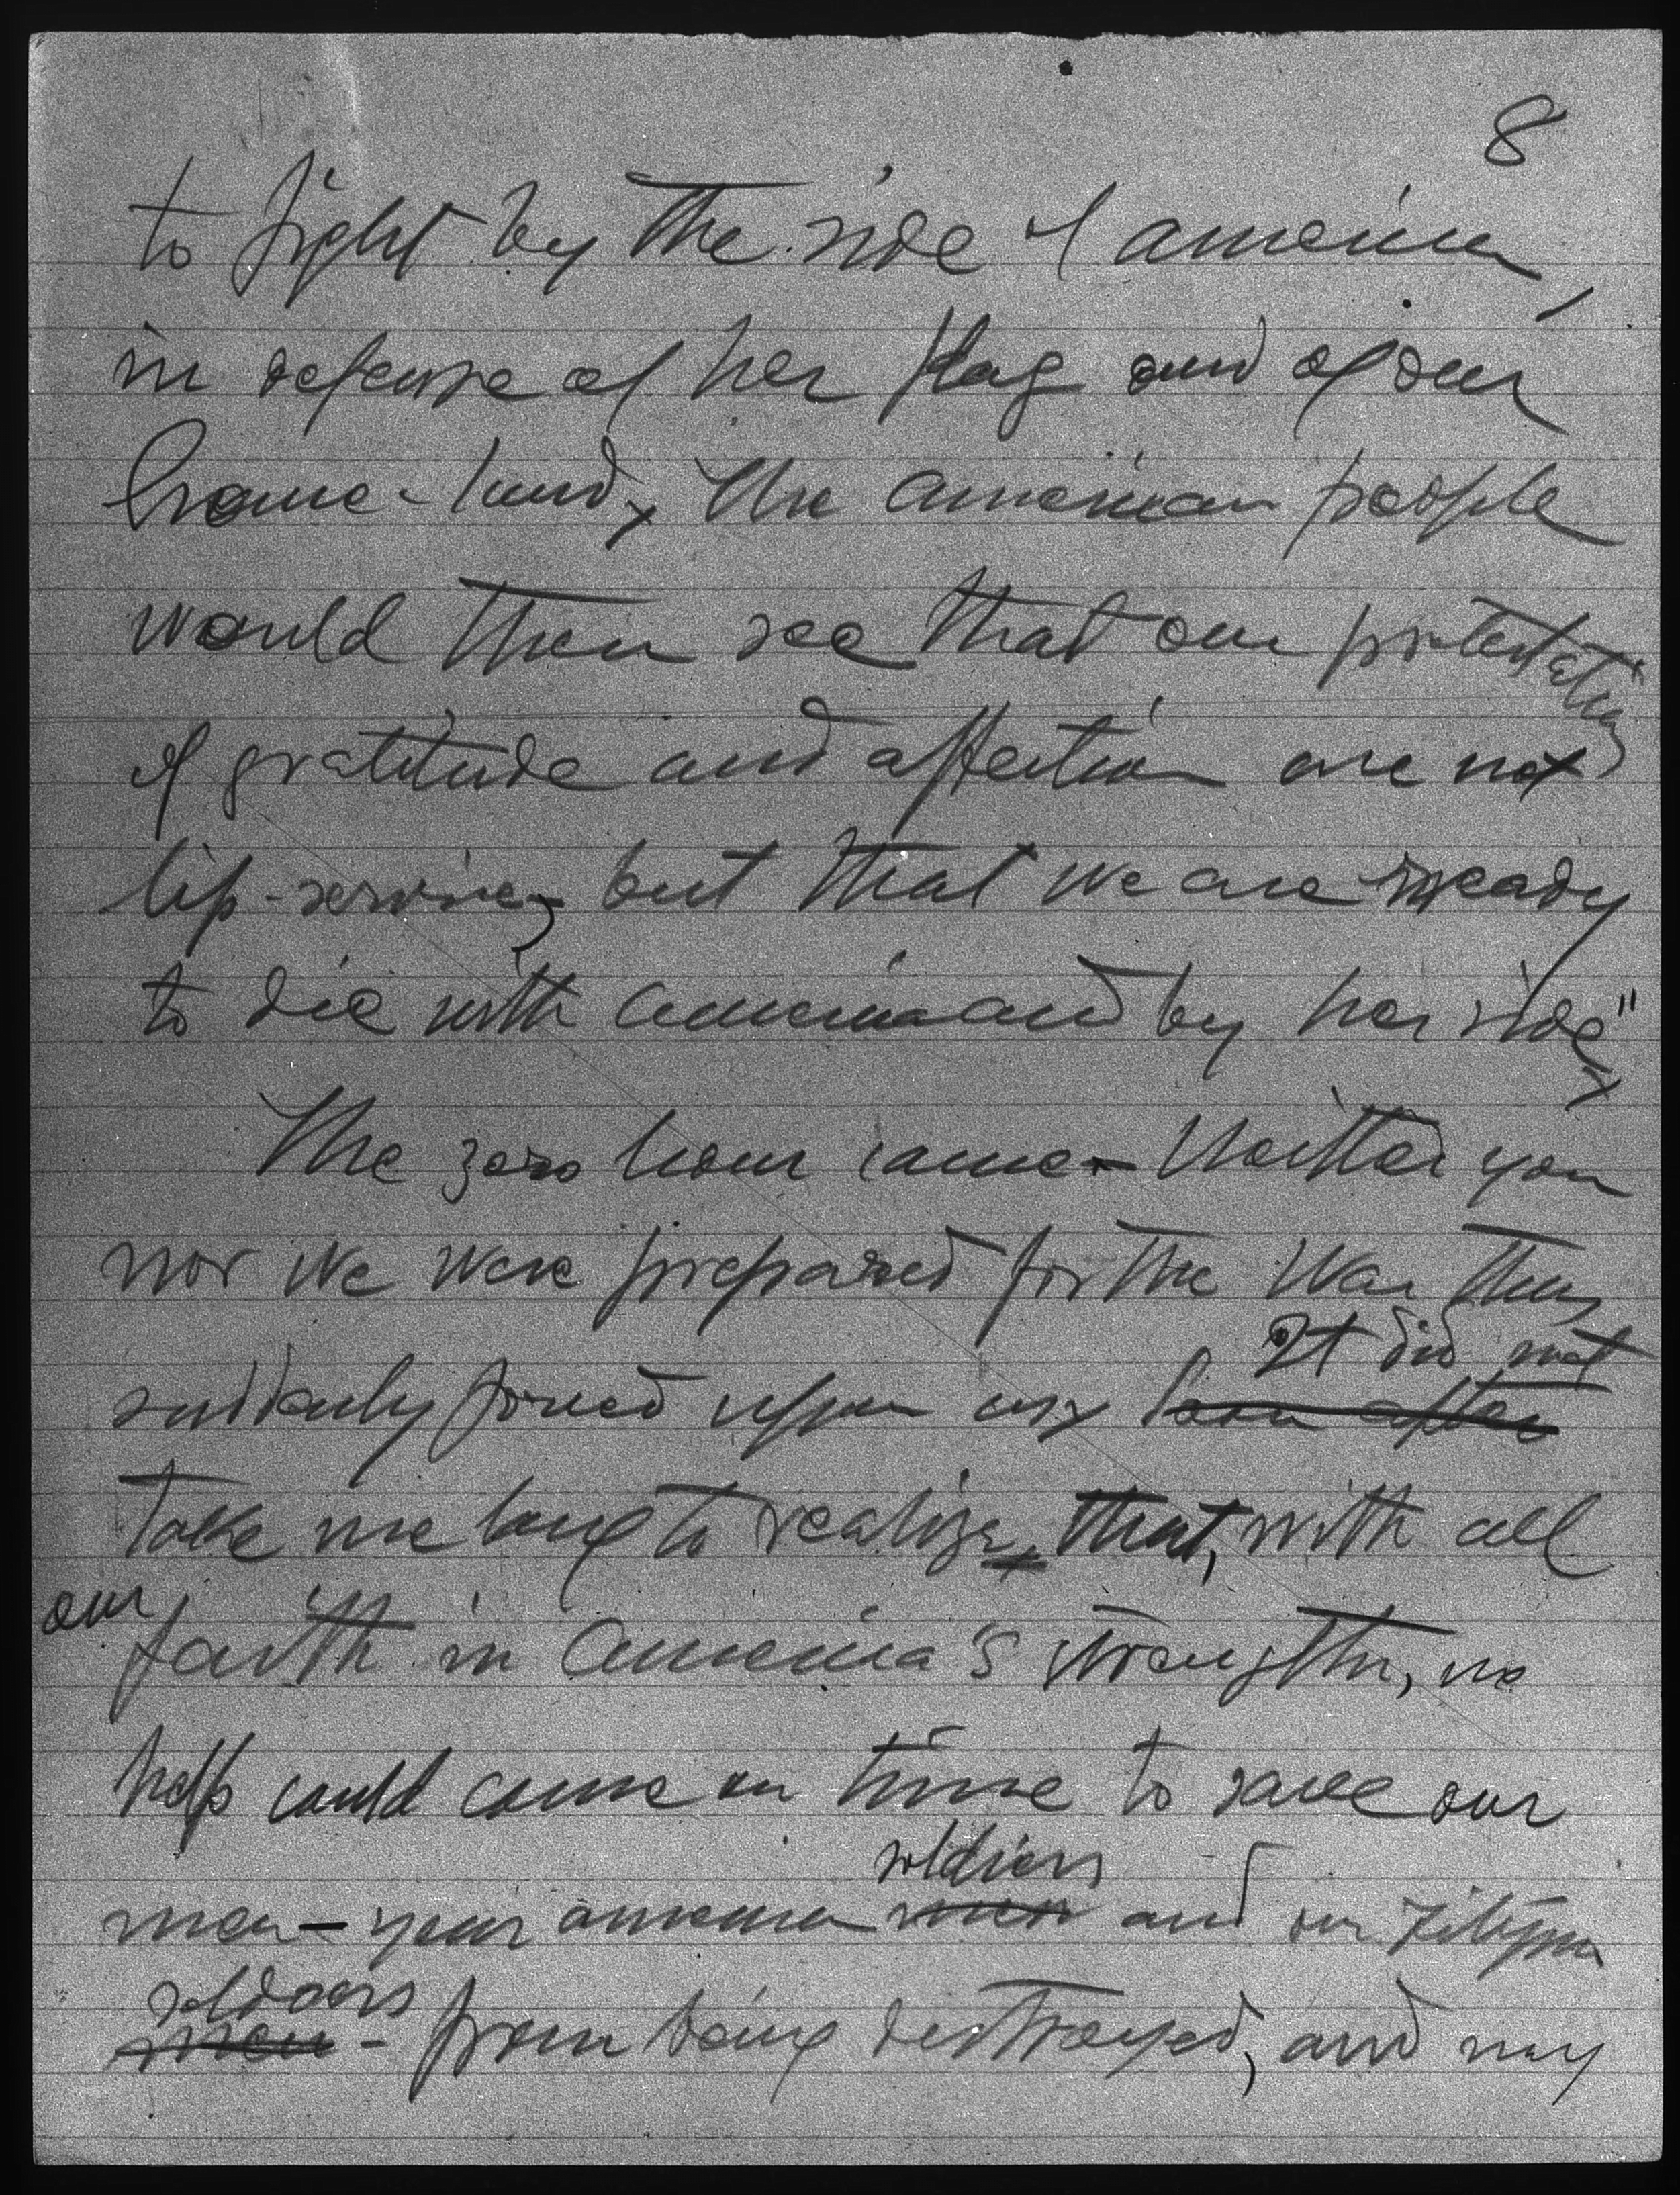 8
to fight by the side of America,
in defense of her flag and of our
home-land. The American people
would then see that our protestations
of gratitude and affection are not
lip-service, but that we are ready
to die with America and by her side"
The zero hour came - Neither you
nor we were prepared for the War thus
It did not
suddenly forced upon us. Soon after
take me long to realize that, with all
our
faith in America's strength, no
help could come on time to save our
soldiers
men - your American men and our Filipino
soldiers
men - from being destroyed, and my